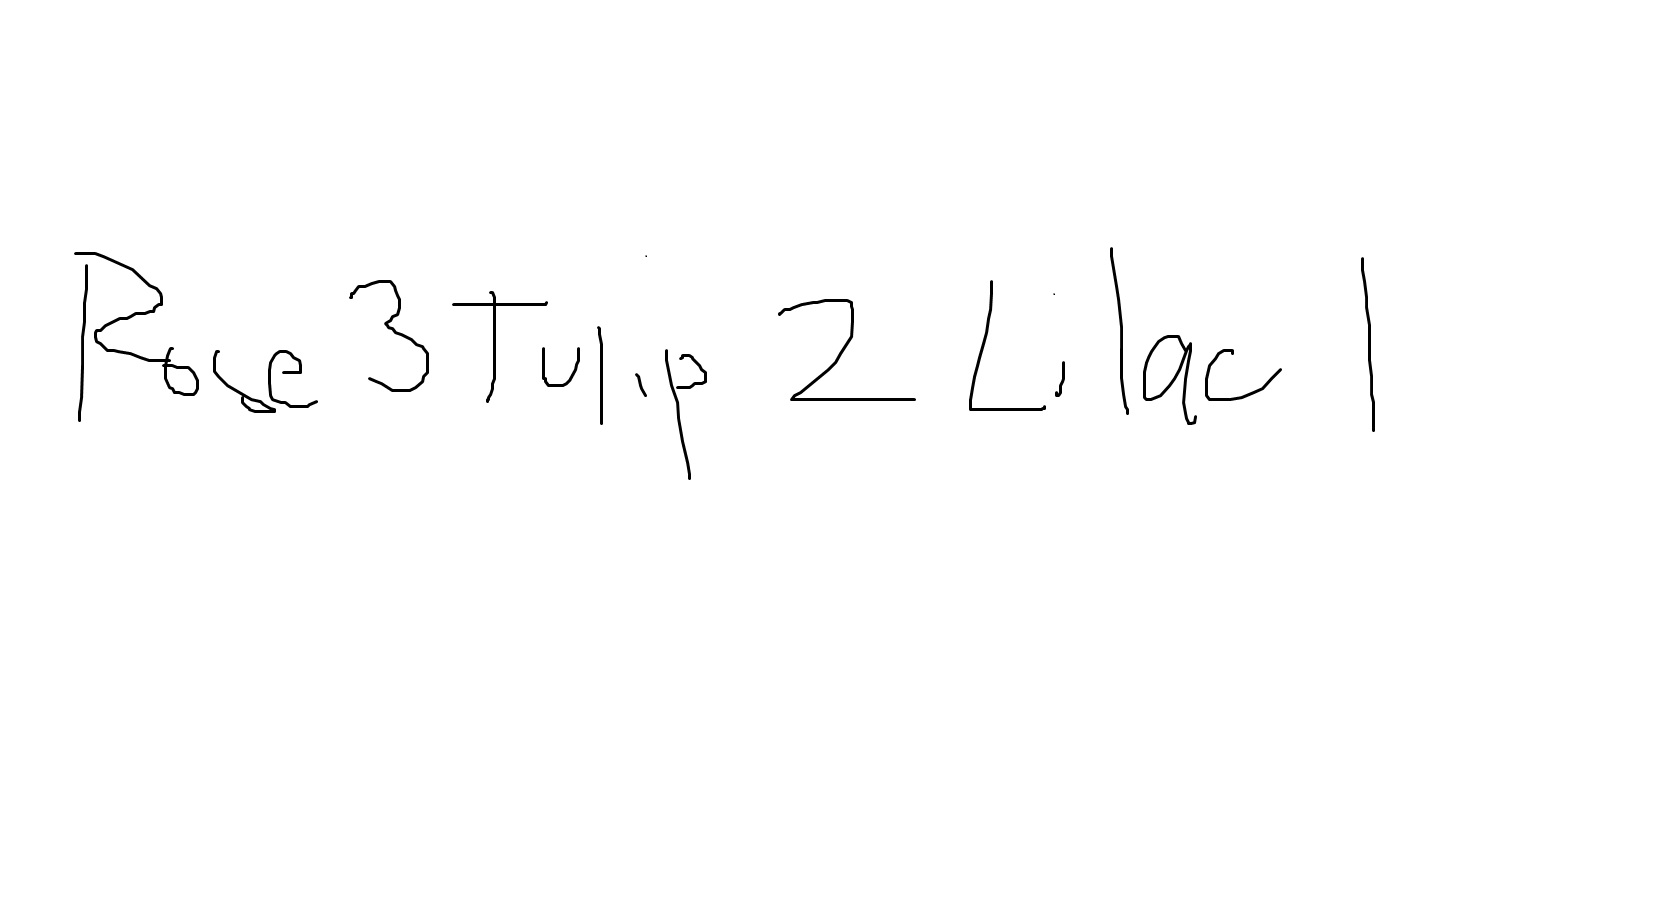 Rose 3 Tulip 2 Lilac 1